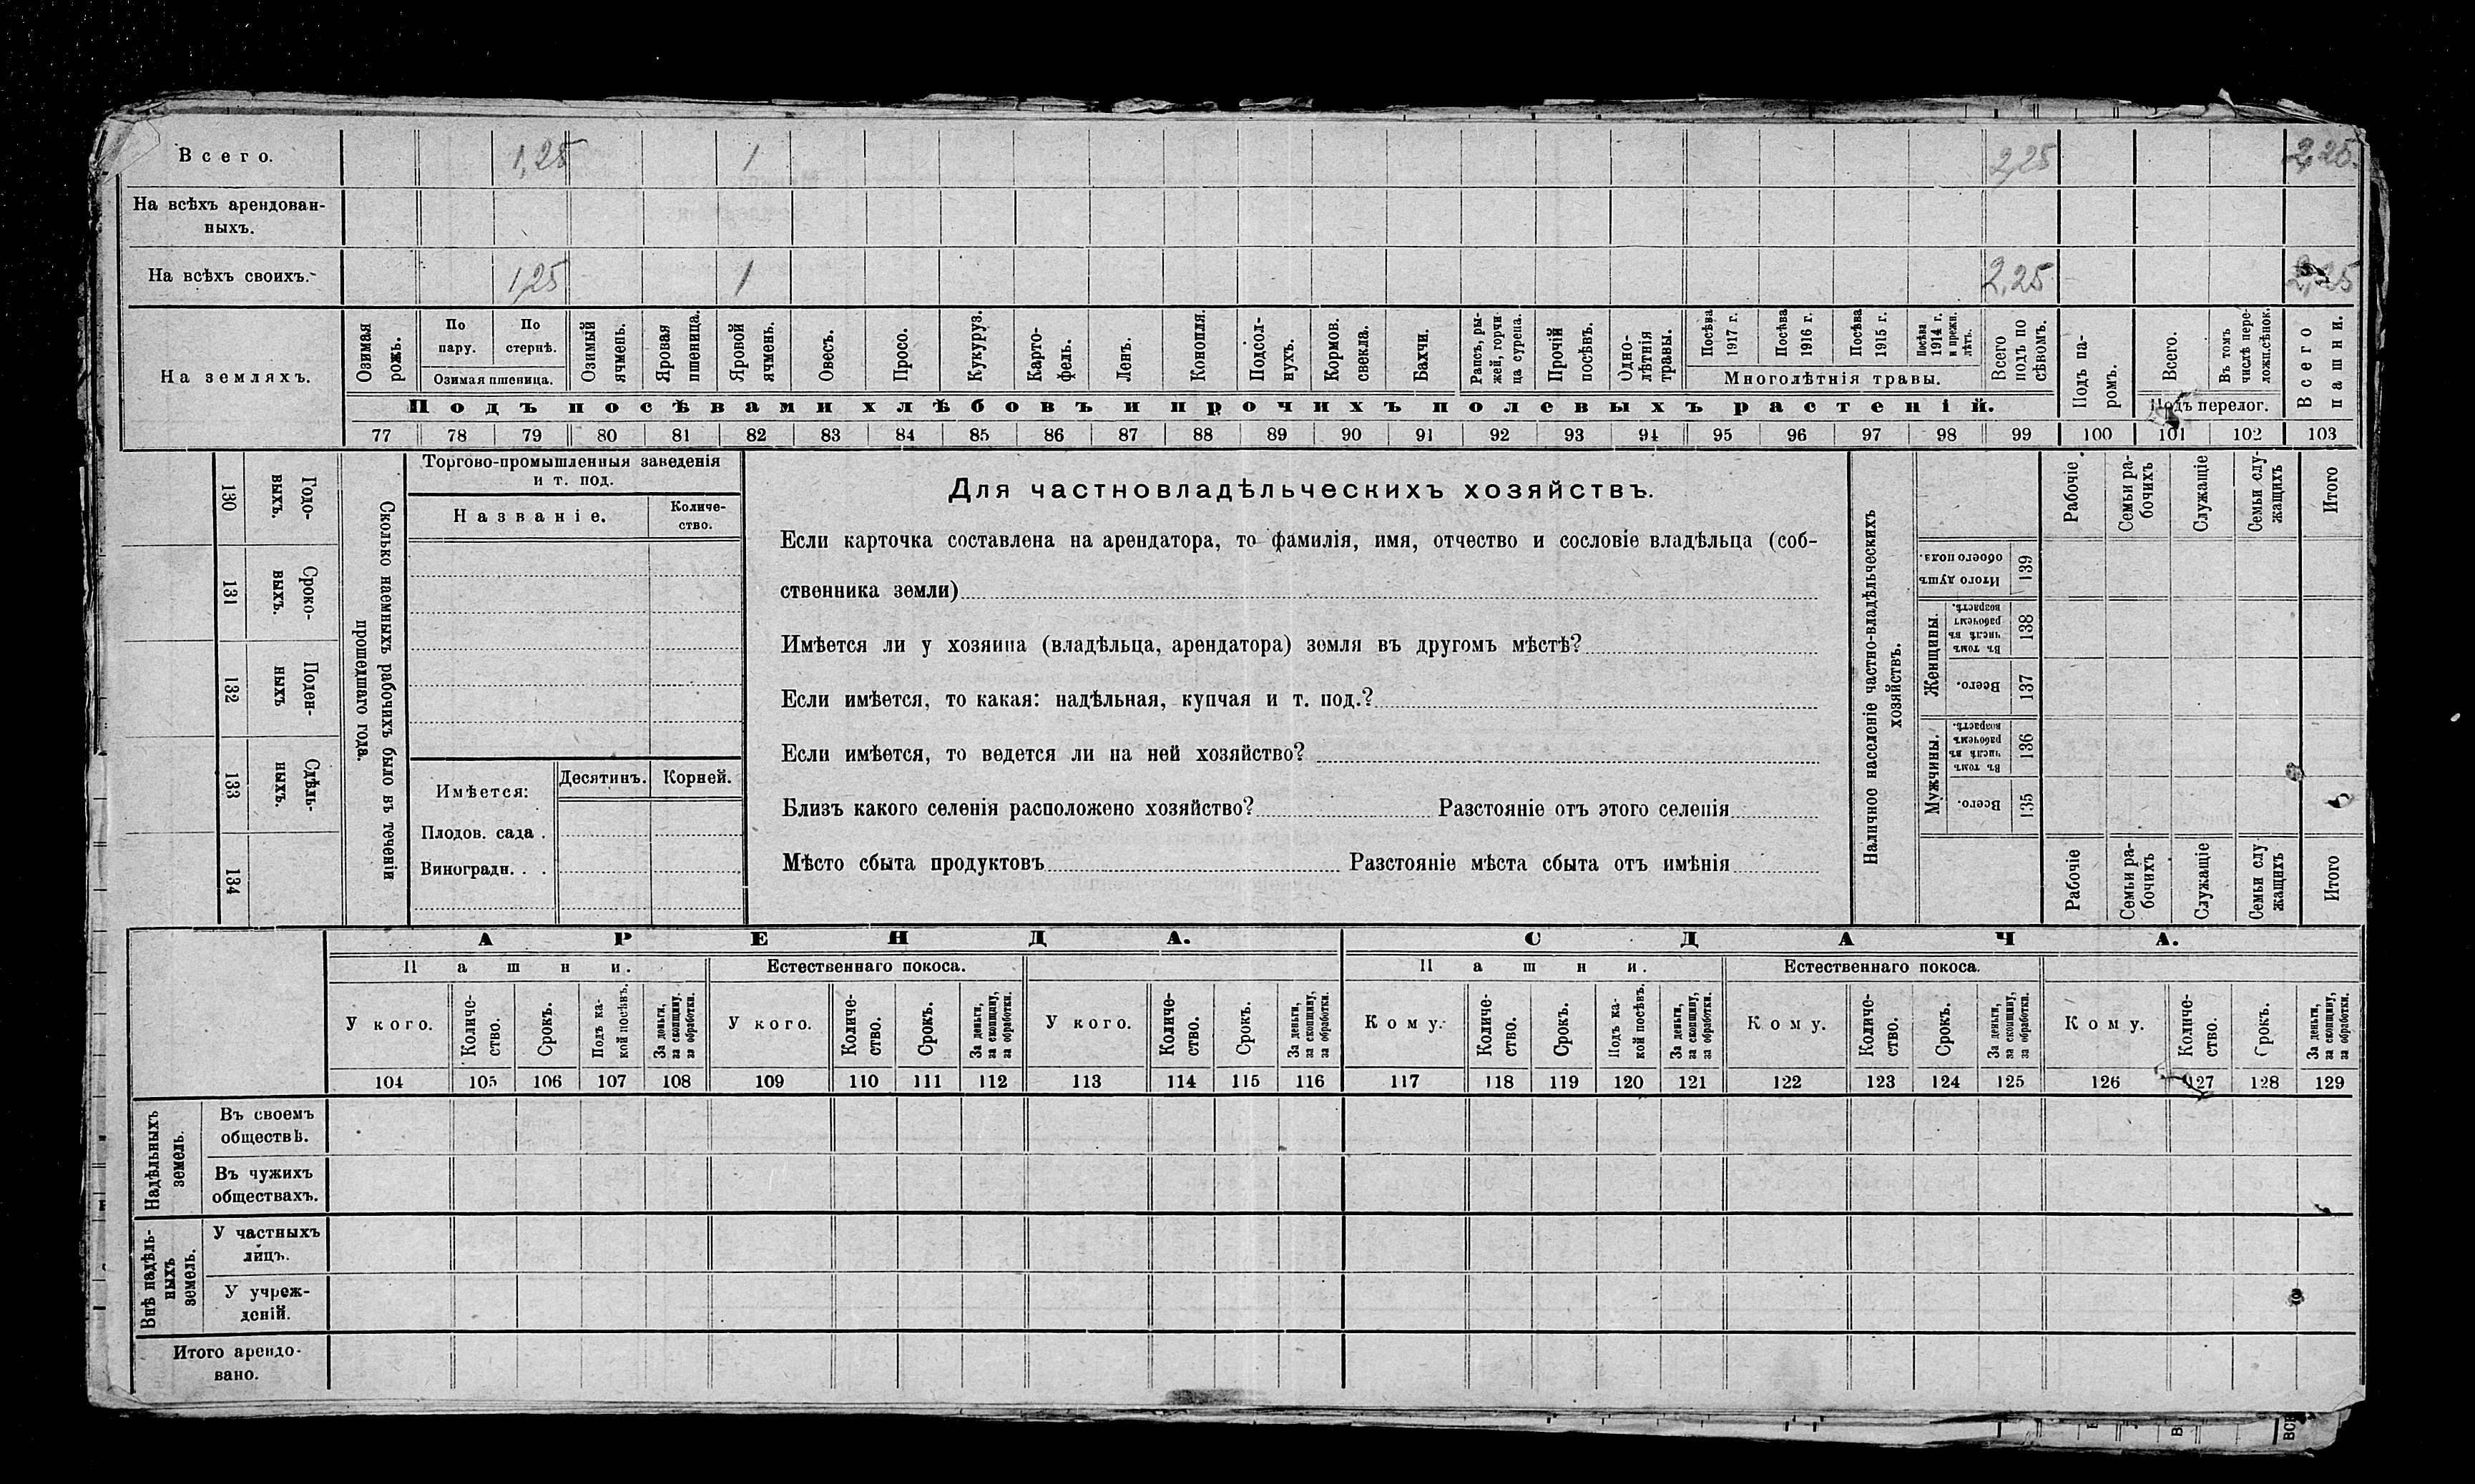 Всего. 1,25 1 2,25 2,25
На всѣхъ арендован-
ныхъ.
На всѣхъ своихъ. 1,25 1 2,25 2,25
На земляхъ.
Озимая рожь.
По пару.
По стернѣ.
Озимая пшеница.
Озимый ячмень.
Яровая пшеница.
Яровой ячмень.
Овесъ.
Просо.
Кукуруз.
Карто-
фель.
Ленъ.
Конопля.
Подсол-
нухъ.
Кормов. свекла.
Бахчи.
Рапсъ, ры-
жей, горчи-
ца сурепа.
Прочій посѣвъ.
Одно-
лѣтнія травы.
Посѣва 1917 г.
Посѣва 1916 г.
Посѣва 1915 г.
Посѣва 1914 г. и прежн. лѣтъ.
Многолѣтнія травы.
Всего подъ по
сѣвомъ.
Подъ па-
ромъ.
Всего.
Въ томъ числѣ пере-
Подъ перелог.
Всего пашни.
Подъ посѣвами хлѣбовъ и прочихъ полевыхъ растеній.
77 78 79 80 81 82 83 84 85 86 87 88 89 90 91 92 93 94 95 96 97 98 99 100 101 102 103
130 Годо-
выхъ.
131 Сроко-
выхъ.
132 Поден-
ныхъ
133 Сдѣль-
ныхъ.
134
Сколько наемныхъ рабочихъ было въ теченіи
прошедшаго года.
Торгово-промышленныя заведенія
и т. под.
Названіе.
Количе-
ство.
Имѣется:
Десятинъ. Корней.
Плодов. сада .
Виноградн. . .
Для частновладѣльческихъ хозяйствъ.
Если карточка составлена на арендатора, то фамилія, имя, отчество и сословіе владѣльца (соб-
ственника земли)
Имѣется ли у хозяина (владѣльца, арендатора) земля въ другомъ мѣстѣ?
Если имѣется, то какая: надѣльная, купчая и т. под.?
Если имѣется, то ведется ли на ней хозяйство?
Близъ какого селенія расположено хозяйство? Разстояніе отъ этого селенія
Мѣсто сбыта продуктовъ Разстояніе мѣста сбыта отъ имѣнія
Наличное населеніе частно-владѣльческихъ
хозяйствъ.
Рабочіе
Семьи ра-
бочихъ
Служащіе
Семьи слу-
жащихъ
Итого
Итого душъ обоего пола. 139
Женщины.
Въ томъ числѣ въ рабочемъ возрастѣ. 138
Всего. 137
Мужчины.
Въ томъ числѣ въ рабочемъ возрастѣ. 136
Всего. 135
Рабочіе
Семьи ра-
бочихъ
Служащіе
Семьи слу
жащихъ
Итого
АРЕНДА. СДАЧА.
Пашни. Естественнаго покоса. Пашни. Естественнаго покоса.
У кого.
Количе-
ство.
Срокъ.
Подъ ка-
кой посѣвъ.
За деньги, за скопщину, за обработки.
У кого.
Количе-
ство.
Срокъ.
За деньги, за скопщину, за обработки.
У кого.
Количе-
ство.
Срокъ.
За деньги, за скопщину, за обработки.
Кому.
Количе-
ство.
Срокъ.
Подъ ка-
кой посѣвъ.
За деньги, за скопщину, за обработки.
Кому.
Количе-
ство.
Срокъ.
За деньги, за скопщину, за обработки.
Кому.
Количе-
ство.
Срокъ.
За деньги, за скопщину, за обработки.
104 105 106 107 108 109 110 111 112 113 114 115 116 117 118 119 120 121 122 123 124 125 126 127 128 129
Надѣльныхъ
земель.
Въ своемъ
обществѣ.
Въ чужихъ
обществахъ.
Внѣ надѣль-
ныхъ
земель.
У частныхъ
лицъ.
У учреж-
деній.
Итого арендо-
вано.